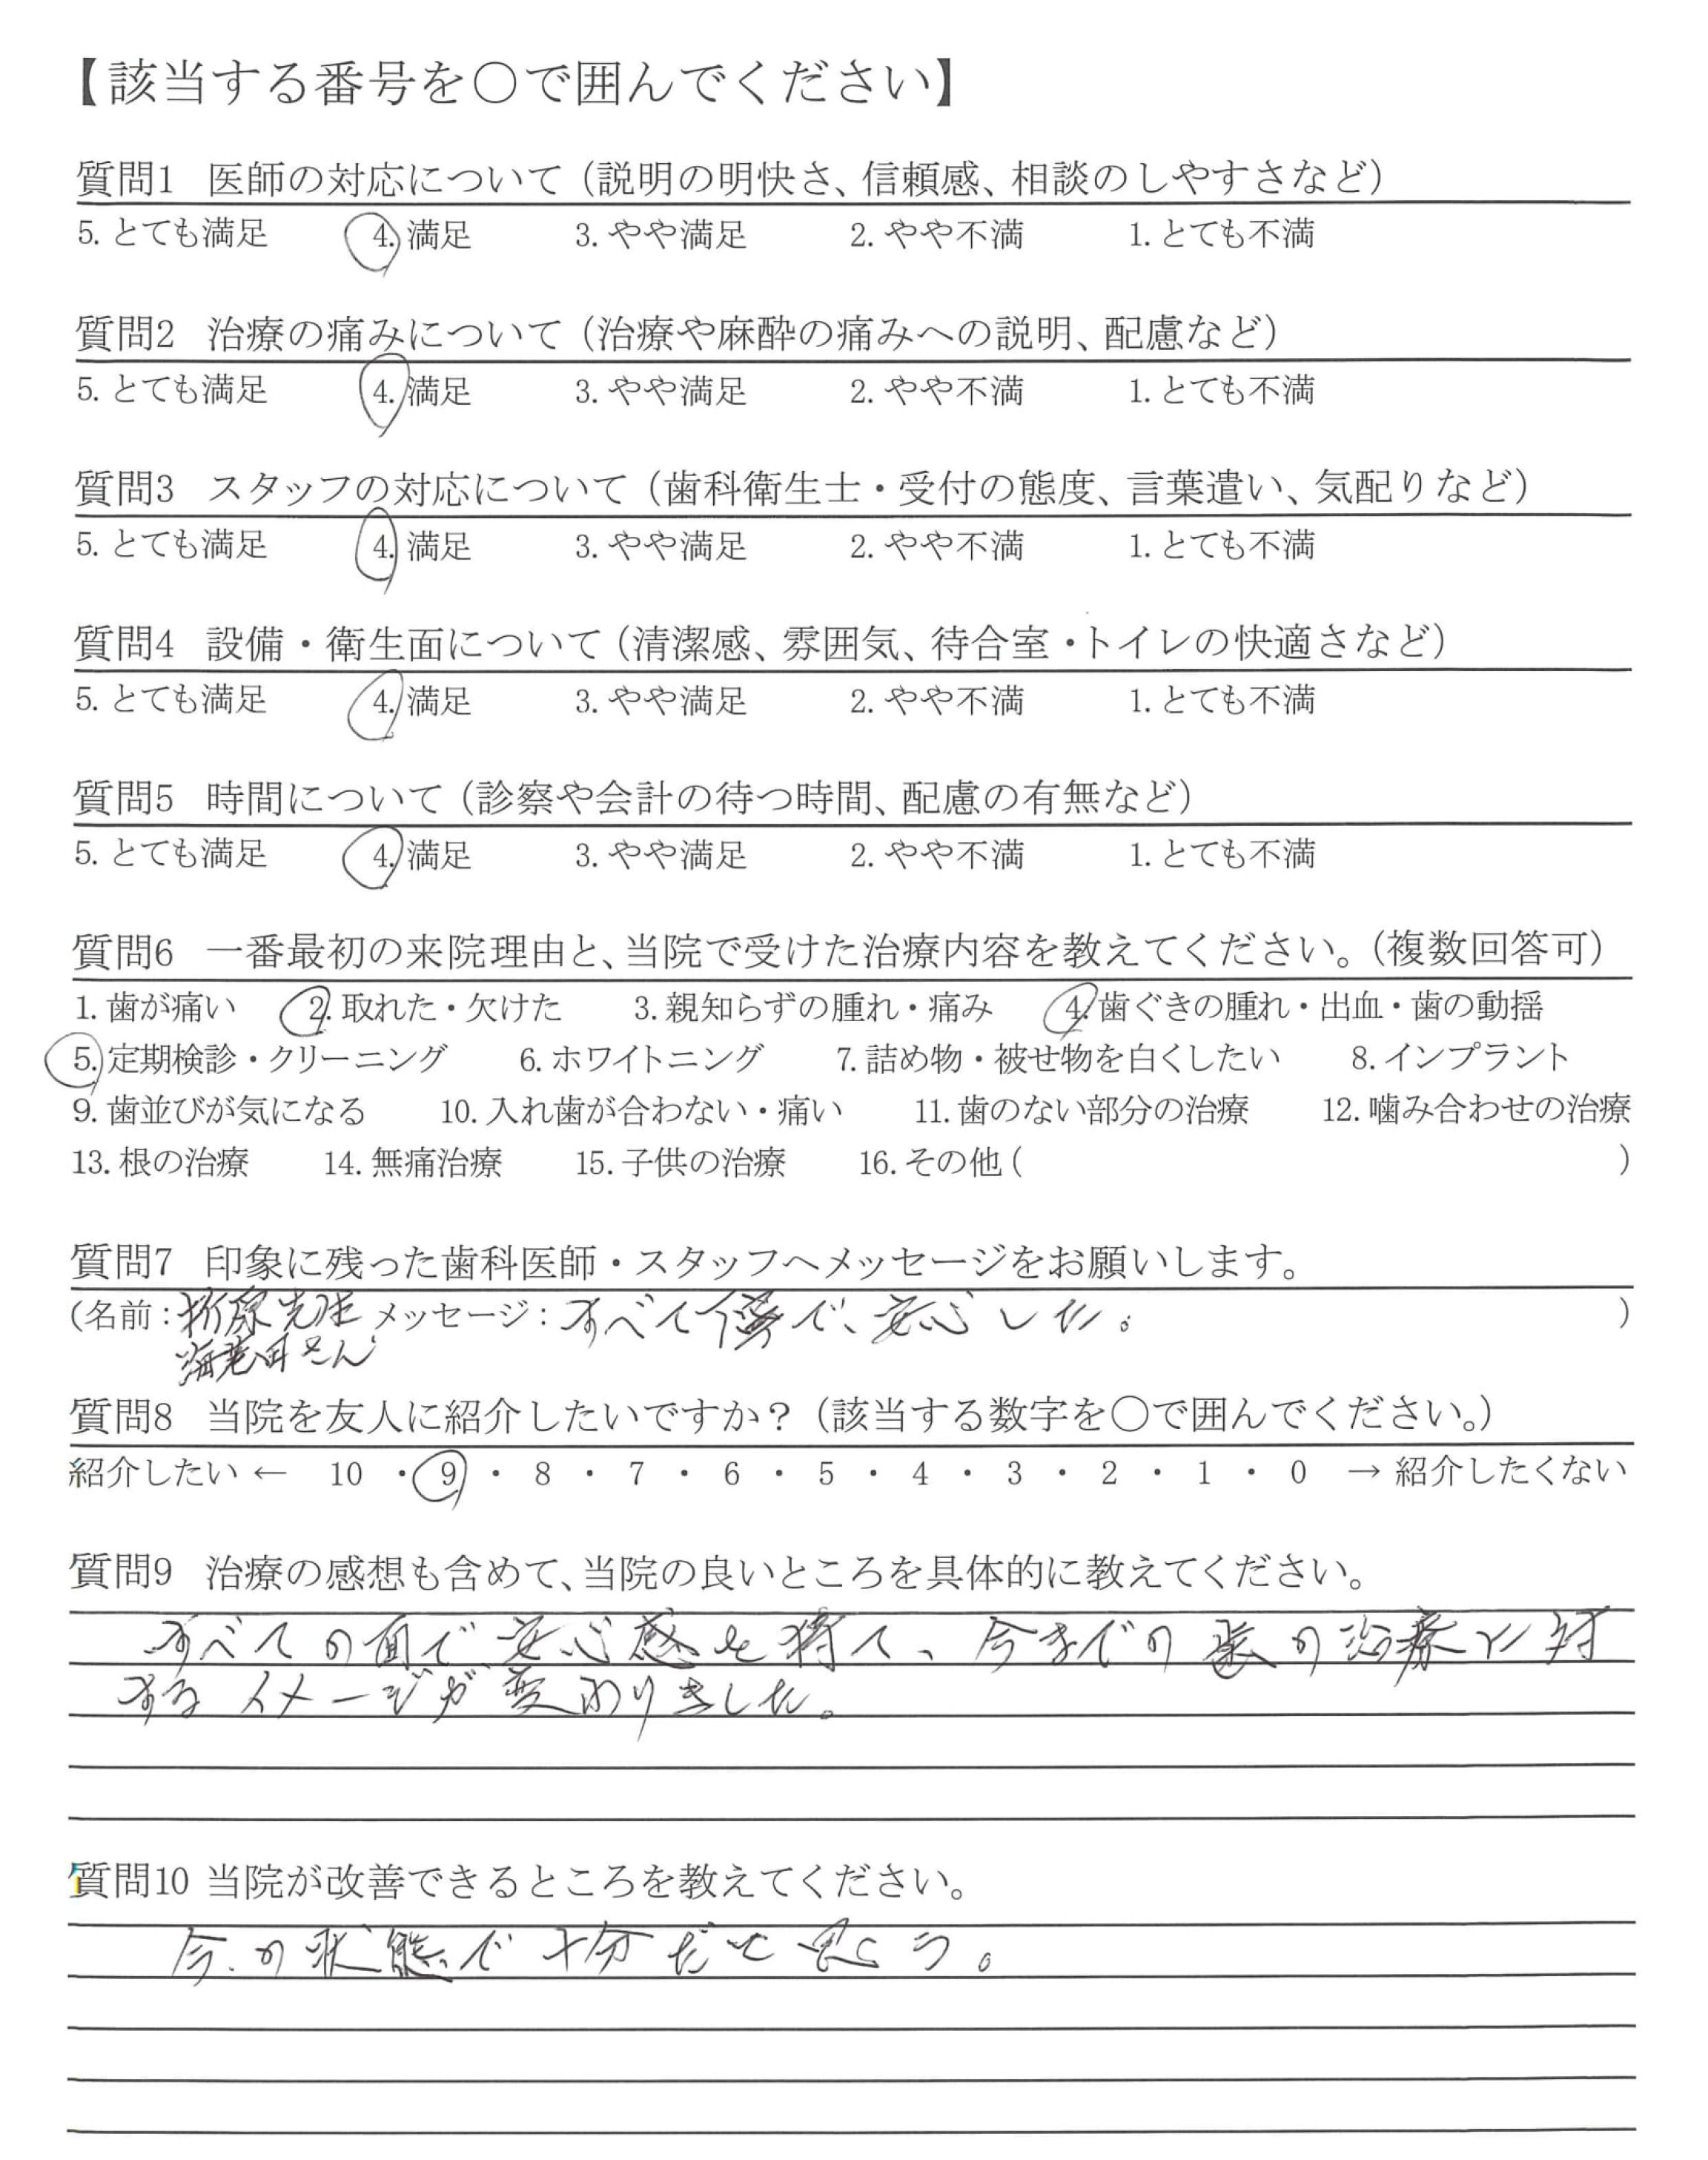 【該当する番号を○で囲んでください】
質問1 医師の対応について（説明の明快さ、信頼感、相談のしやすさなど）
5. とても満足 4. 満足 3. やや満足 2. やや不満 1. とても不満
質問2 治療の痛みについて（治療や麻酔の痛みへの説明、配慮など）
5. とても満足 4. 満足 3. やや満足 2. やや不満 1. とても不満
質問3 スタッフの対応について（歯科衛生士・受付の態度、言葉遣い、気配りなど）
5. とても満足 4. 満足 3. やや満足 2. やや不満 1. とても不満
質問4 設備・衛生面について（清潔感、雰囲気、待合室・トイレの快適さなど）
5. とても満足 4. 満足 3. やや満足 2. やや不満 1. とても不満
質問5 時間について（診察や会計の待つ時間、配慮の有無など）
5. とても満足 4. 満足 3. やや満足 2. やや不満 1. とても不満
質問6 一番最初の来院理由と、当院で受けた治療内容を教えてください。（複数回答可）
1. 歯が痛い 2. 取れた・欠けた 3. 親知らずの腫れ・痛み 4. 歯ぐきの腫れ・出血・歯の動揺
5. 定期検診・クリーニング 6. ホワイトニング 7. 詰め物・被せ物を白くしたい 8. インプラント
9. 歯並びが気になる 10. 入れ歯が合わない・痛い 11. 歯のない部分の治療 12. 噛み合わせの治療
13. 根の治療 14. 無痛治療 15. 子供の治療 16. その他（ ）
質問7 印象に残った歯科医師・スタッフへメッセージをお願いします。
（名前：折原先生 メッセージ：すべて丁寧で、安心した。）
さん
質問8 当院を友人に紹介したいですか？（該当する数字を○で囲んでください。）
紹介したい ← 10 ・ 9 ・ 8 ・ 7 ・ 6 ・ 5 ・ 4 ・ 3 ・ 2 ・ 1 ・ 0 → 紹介したくない
質問9 治療の感想も含めて、当院の良いところを具体的に教えてください。
すべての面で安心感を持て、今までの歯の治療に対
するイメージが変わりました。
質問10 当院が改善できるところを教えてください。
今の状態で十分だと思う。